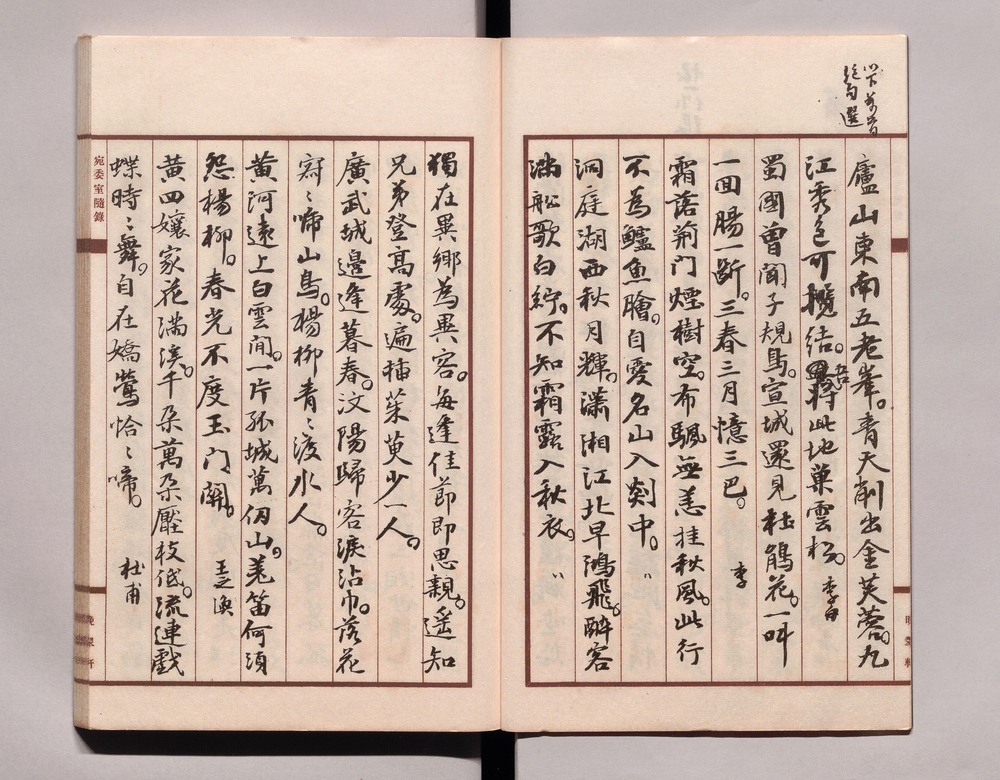 以下萬首
絕句選
廬山東南五老峯。青天削出金芙蓉。九
江秀色可攬結。吾將此地巢雲松。李白
蜀國曾聞子規鳥。宣城還見杜鵑花。一叫
一回腸一斷。三春三月憶三巴。李
霜落荊門煙樹空。布颿無恙挂秋風。此行
不為鱸魚膾。自愛名山入剡中。〃
洞庭湖西秋月輝。瀟湘江北早鴻飛。醉客
滿船歌白紵。不知霜露入秋衣。〃
獨在異鄉為異客。每逢佳節即思親。遙知
兄弟登高處。遍插茱萸少一人。
廣武城邊逢暮春。汶陽歸客淚沾巾。落花
寂〻啼山鳥。楊柳青〻渡水人。
黃河遠上白雲間。一片孤城萬仞山。羌笛何須
怨楊柳。春光不度玉門關。王之渙
黃四孃家花滿溪。千朵萬朵壓枝低。流連戲
蝶時〻舞。自在嬌鶯恰〻啼。杜甫
宛委室隨錄
晚翠軒